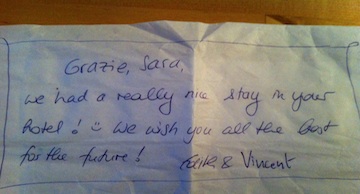 Grazie, Sara,
we had a really nice stay in your
hotel! ☺ We wish you all the best
for the future! & Vincent